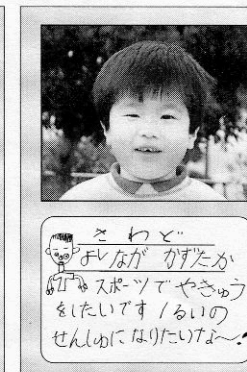 さわど
よしなが かずたか
スポーツで やきゅう
をしたいです 1るいの
せんしゅに なりたいなー!